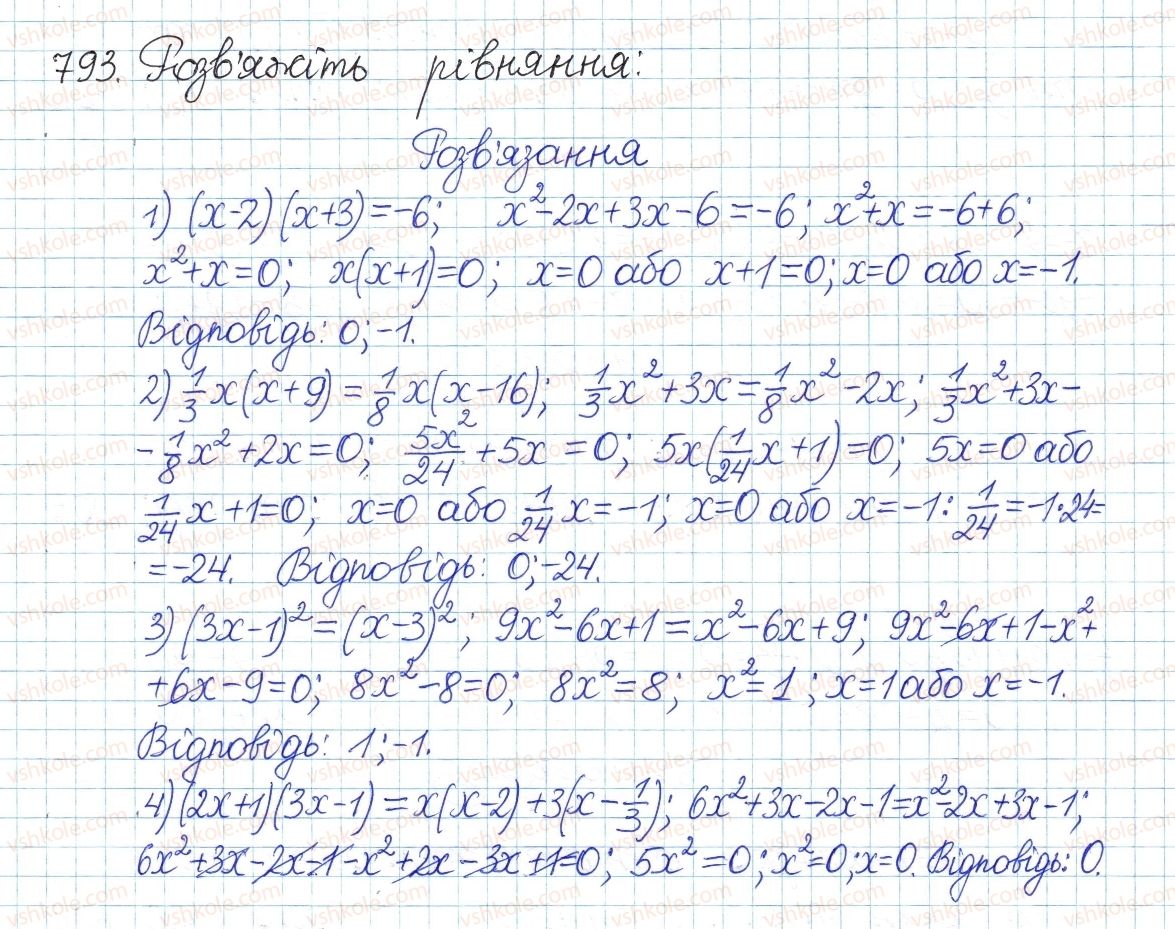 793. Розв'яжіть рівняння:
Розв'язання
1) (x-2)(x+3)=-6; x²-2x+3x-6=-6; x²+x=-6+6;
x²+x=0; x(x+1)=0; x=0 або x+1=0; x=0 або x=-1.
Відповідь: 0; -1.
2) 1/3 x(x+9) = 1/8 x(x-16); 1/3 x²+3x = 1/8 x²-2x; 1/3 x²+3x-
- 1/8 x²+2x=0; 5x²/24 +5x =0; 5x(1/24 x+1)=0; 5x=0 або
1/24 x+1=0; x=0 або 1/24 x=-1; x=0 або x=-1: 1/24 =-1·24=
=-24. Відповідь: 0; -24.
3) (3x-1)²=(x-3)²; 9x²-6x+1=x²-6x+9; 9x²-6x+1-x²+
+6x-9=0; 8x²-8=0; 8x²=8; x²=1; x=1 або x=-1.
Відповідь: 1; -1.
4) (2x+1)(3x-1)=x(x-2)+3(x-1/3); 6x²+3x-2x-1=x²-2x+3x-1;
6x²+3x-2x-1-x²+2x-3x+1=0; 5x²=0; x²=0; x=0. Відповідь: 0.
vshkole.com